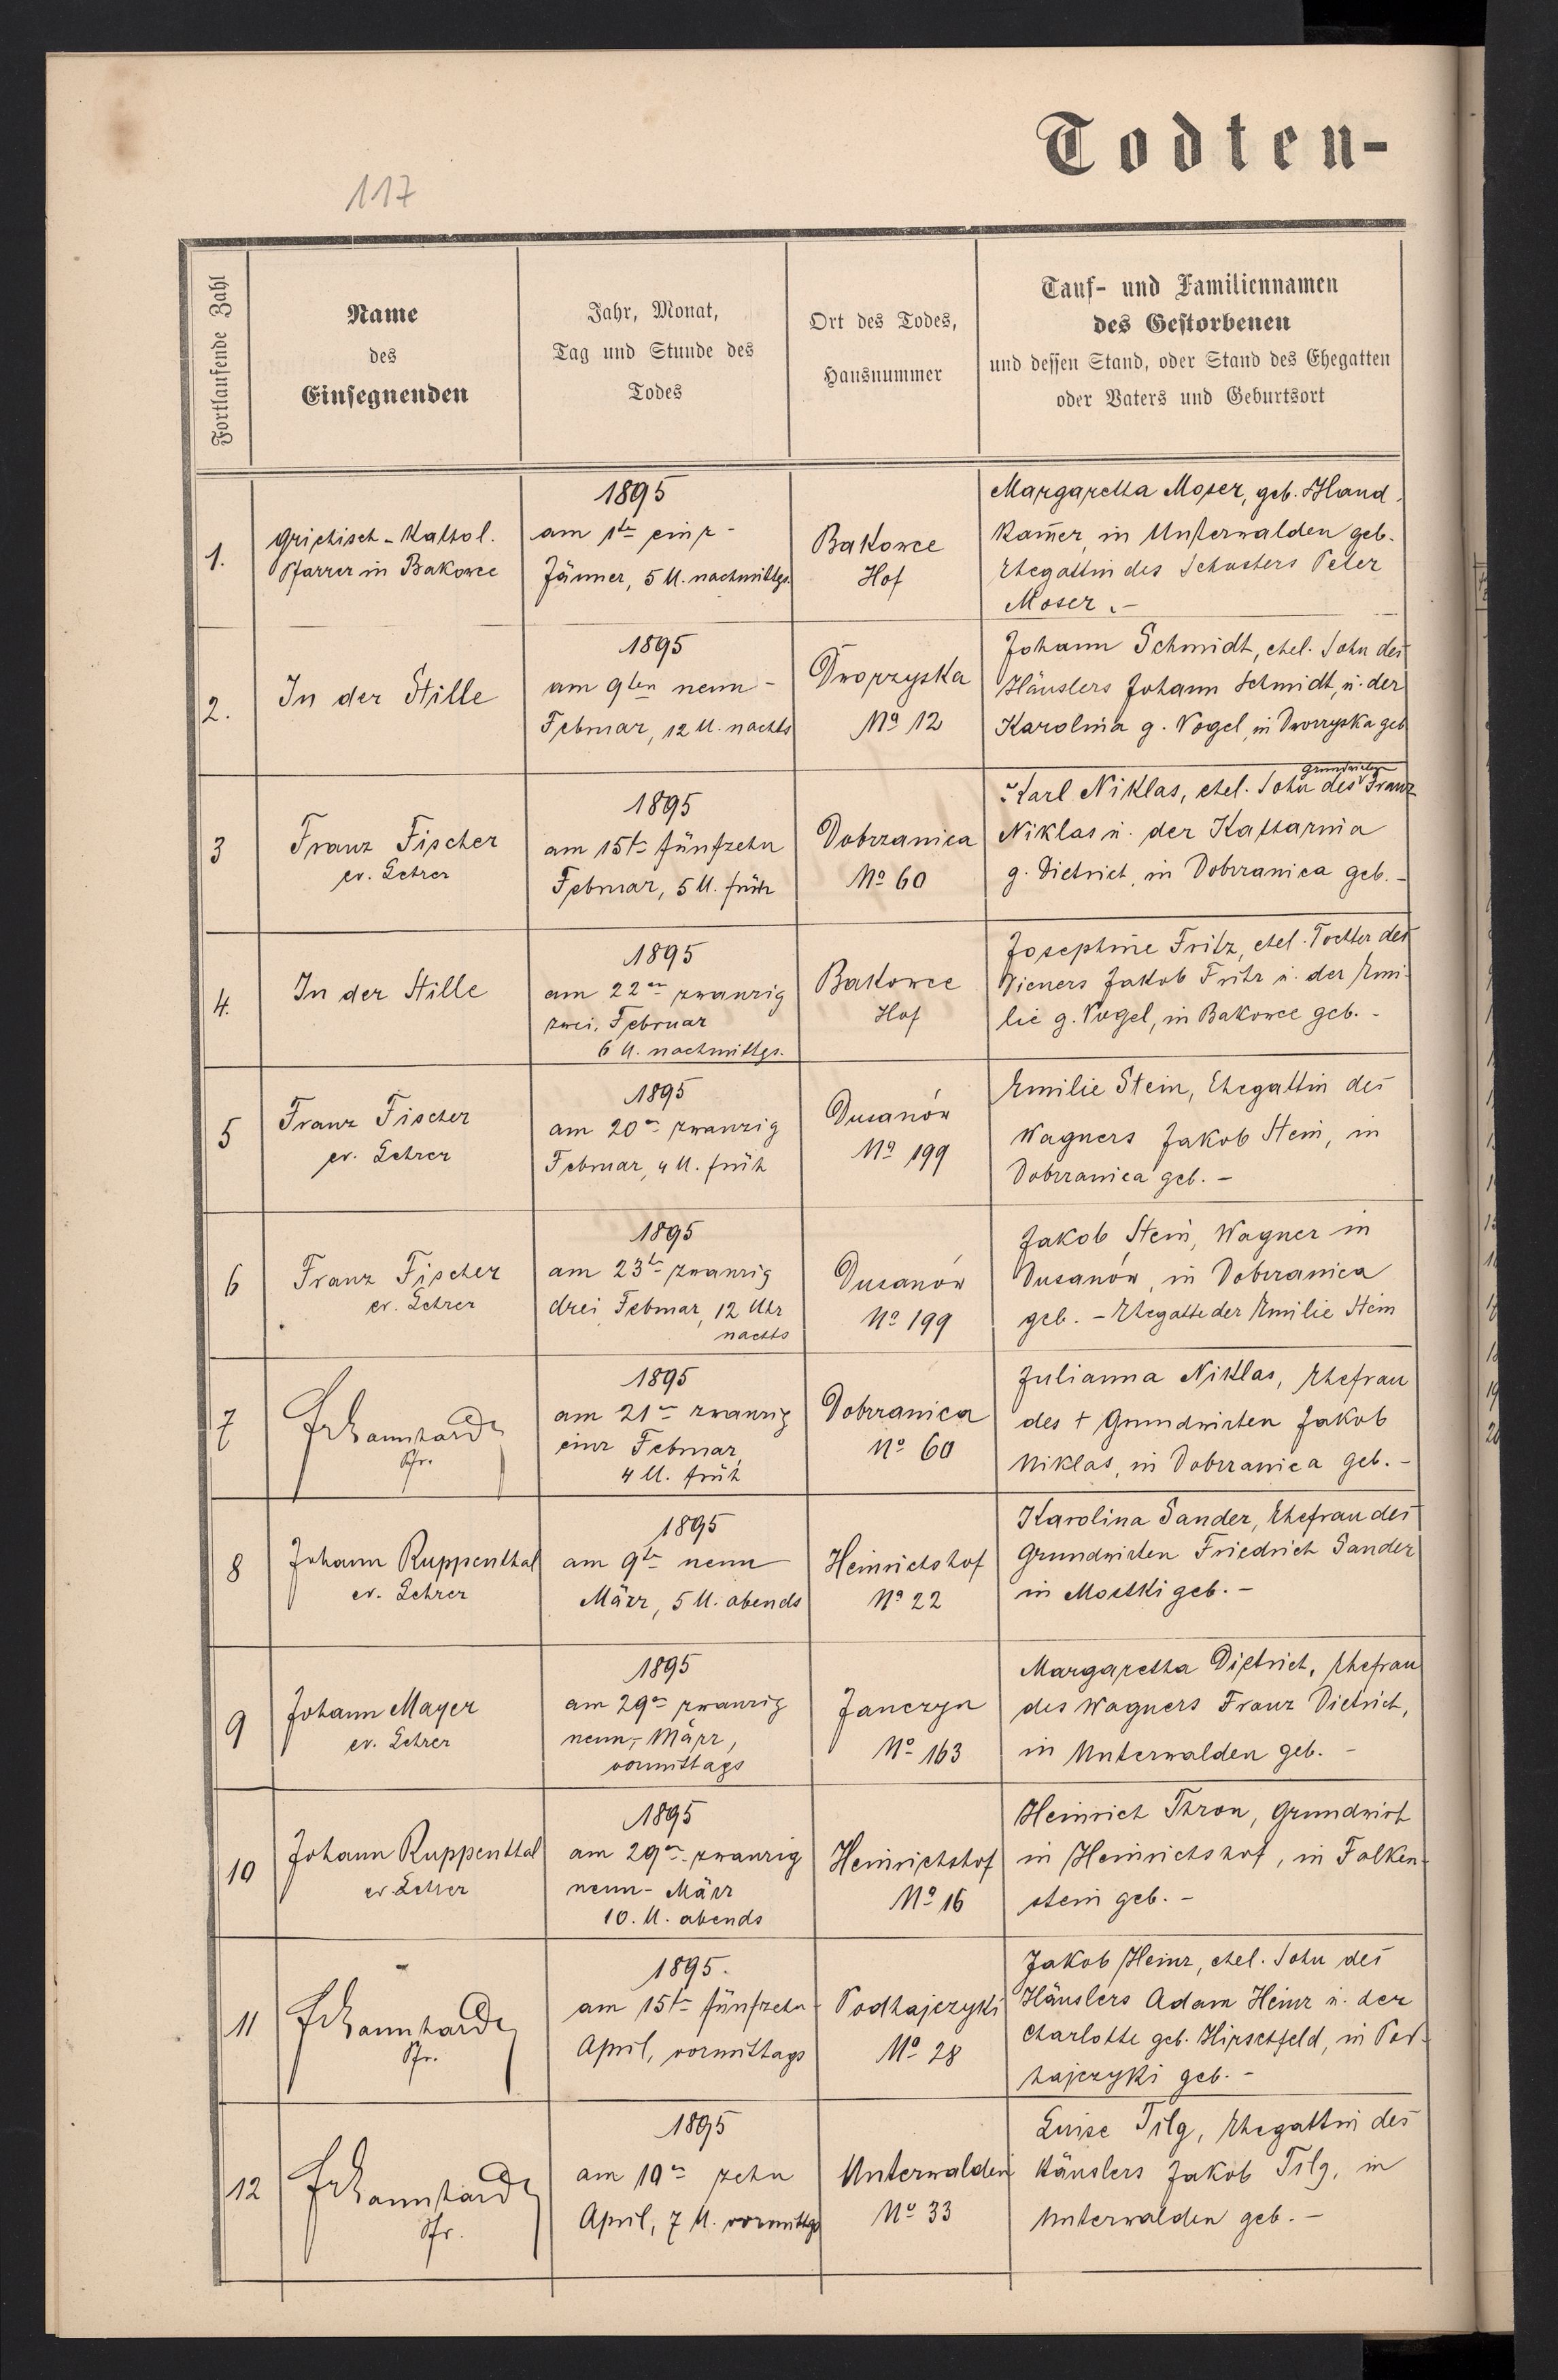 Todten-
117
Fortlaufende Zahl
Name
des
Einsegnenden
Jahr, Monat,
Tag und Stunde des
Todes
Ort des Todes,
Hausnummer
Tauf- und Familiennamen
des Gestorbenen
und dessen Stand, oder Stand des Ehegatten
oder Vaters und Geburtsort
1.
Griechisch-Kathol.
Pfarrer in Bakowce
1895
am 1te eins-
Jänner, 5 U. nachmittgs.
Bakowce
Hof
Margaretha Moser, geb. Hand-
kam̄er, in Unterwalden geb.
Ehegattin des Schusters Peter
Moser.-
2.
In der Stille
1895
am 9ten neun-
Februar, 12 U. nachts
Dworzyska
No 12
Johann Schmidt, ehel. Sohn des
Häuslers Johann Schmidt, u. der
Karolina g. Vogel, in Dworzyska geb
3
Franz Fischer
ev. Lehrer
1895
am 15te fünfzehn
Februar, 5 U. früh
Dobrzanica
No 60
Karl Niklas, ehel. Sohn des Grundwirten Franz
Niklas u. der Katharina
g. Dietrich, in Dobrzanica geb.-
4.
In der Stille
1895
am 22en zwanzig
zwei, Februar
6 U. nachmittgs.
Bakowce
Hof
Josephine Fritz, ehel. Tochter des
Dieners Jakob Fritz u. der Emi-
lie g. Vogel, in Bakowce geb.-
5
Franz Fischer
ev. Lehrer
1895
am 20en zwanzig
Februar, 4 U. früh
Dusanów
No 199
Emilie Stein, Ehegattin des
Wagners Jakob Stein, in
Dobrzanica geb.-
6
Franz Fischer
ev. Lehrer
1895
am 23te zwanzig
drei Februar, 12 Uhr
nachts
Dusanów
No 199
Jakob Stein, Wagner in
Dusanów, in Dobrzanica
geb. - Ehegatte der Emilie Stein
7
Pfr.
1895
am 21en zwanzig
eins Februar,
4 U. früh
Dobrzanica
No 60
Julianna Niklas, Ehefrau
des † Grundwirten Jakob
Niklas, in Dobrzanica geb.-
8
Johann Ruppenthal
ev. Lehrer
1895
am 9te neun
März, 5 U. abends
Heinrichshof
No 22
Karolina Sander, Ehefrau des
Grundwirten Friedrich Sander
in Mostki geb.-
9
Johann Mayer
ev. Lehrer
1895
am 29en zwanzig
neun-, März,
vormittags
Janczyn
No 163
Margaretha Dietrich, Ehefrau
des Wagners Franz Dietrich,
in Unterwalden geb. -
10
Johann Ruppenthal
ev Lehrer
1895
am 29en zwanzig
neun- März
10. U. abends
Heinrichshof
No 16
Heinrich Thron, Grundwirt
in Heinrichshof, in Falken-
stein geb.-
11
Pfr.
1895.
am 15te fünfzehn-
April, vormittags
Podhajczyki
No 28
Jakob Heinz, ehel. Sohn des
Häuslers Adam Heinz u. der
Charlotte geb. Hirschfeld, in Pod-
hajczyki geb.-
12
Pfr.
1895
am 10en zehn
April, 7 U. vormittgs
Unterwalden
No 33
Luise Tilg, Ehegattin des
Häuslers Jakob Tilg, in
Unterwalden geb.-